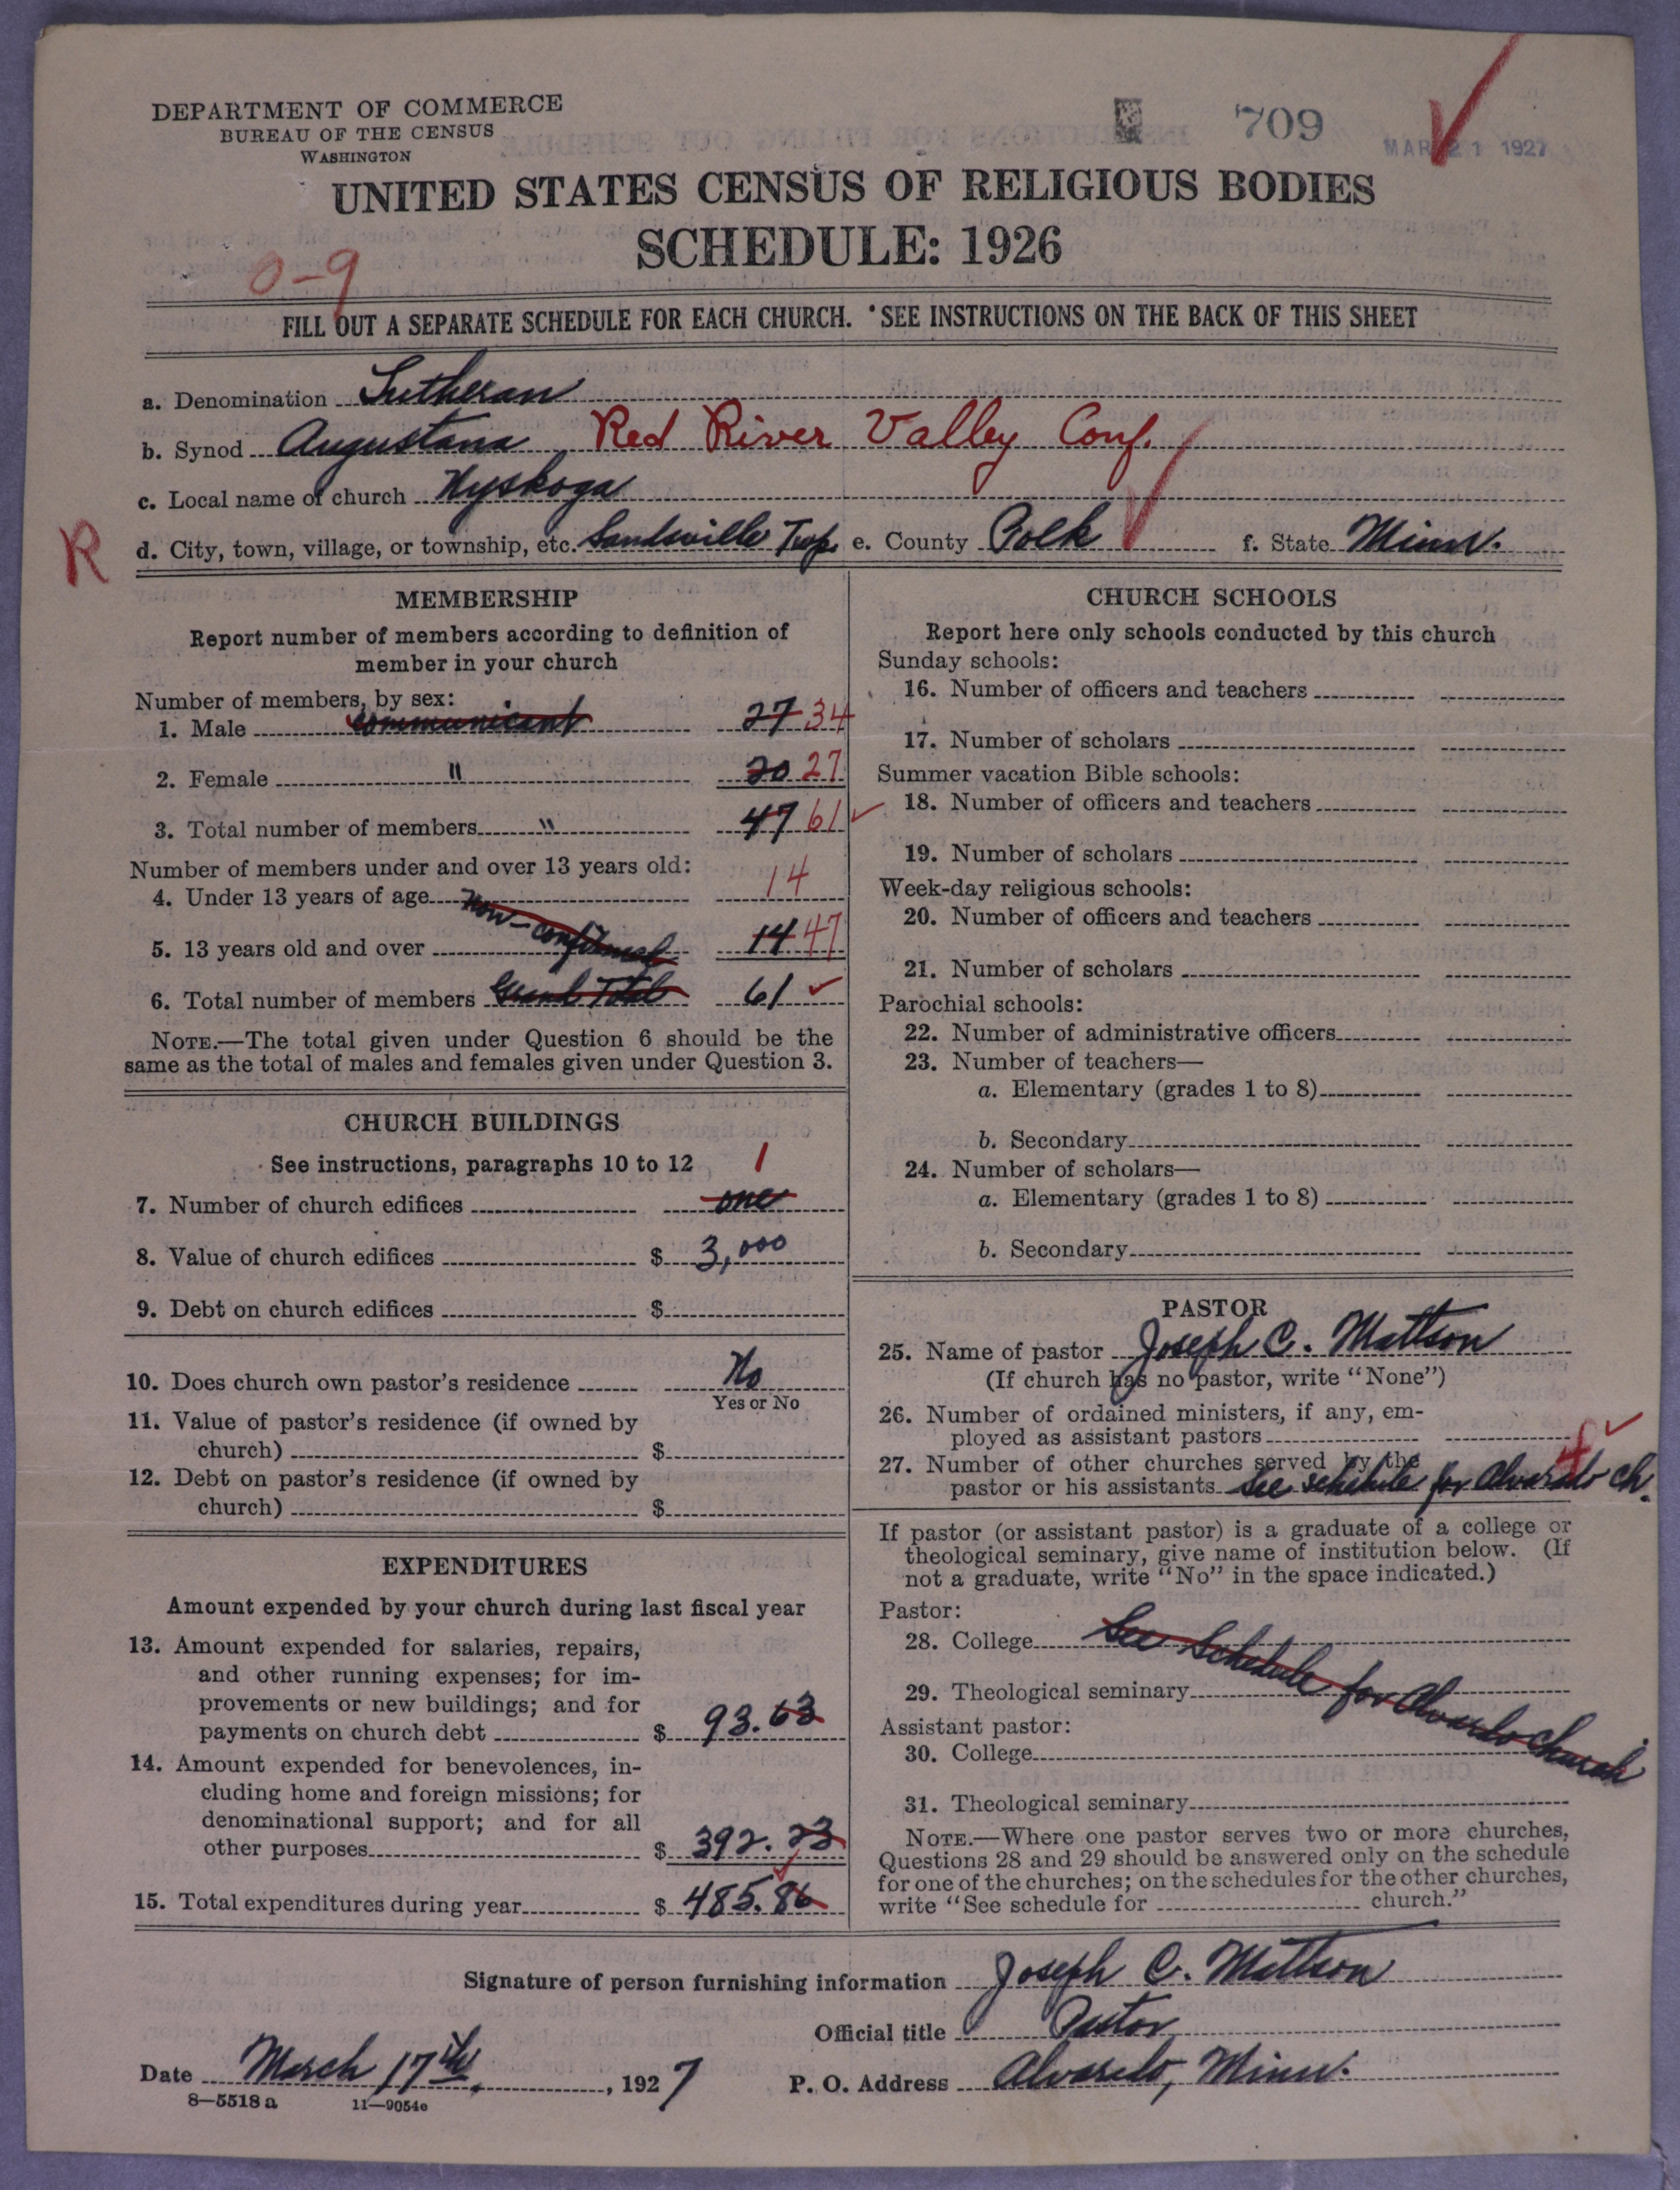 DEPARTMENT OF COMMERCE
BUREAU OF THE CENSUS
WASHINGTON
709
MAR 21 1927
UNITED STATES CENSUS OF RELIGIOUS BODIES
SCHEDULE: 1926
0-9
FILL OUT A SEPARATE SCHEDULE FOR EACH CHURCH. SEE INSTRUCTIONS ON THE BACK OF THIS SHEET
a. Denomination Lutheran
b. Synod Augustana Red River Valley Conf.
c. Local name of church Nyskoga
R
d. City, town, village, or township, etc. Sandsville Twp. e. County Polk f. State Minn.
MEMBERSHIP
Report number of members according to definition of
member in your church
Number of members, by sex:
1. Male communicant 27 34
2. Female " 20 27
3. Total number of members " 47 61
Number of members under and over 13 years old:
4. Under 13 years of age 14
5. 13 years old and over non-confirmed 14 47
6. Total number of members Grand Total 61
NOTE.—The total given under Question 6 should be the
same as the total of males and females given under Question 3.
CHURCH BUILDINGS
See instructions, paragraphs 10 to 12 1
7. Number of church edifices one
8. Value of church edifices $ 3,000
9. Debt on church edifices $
10. Does church own pastor's residence No
Yes or No
11. Value of pastor's residence (if owned by
church) $
12. Debt on pastor's residence (if owned by
church) $
EXPENDITURES
Amount expended by your church during last fiscal year
13. Amount expended for salaries, repairs,
and other running expenses; for im-
provements or new buildings; and for
payments on church debt $ 93.63
14. Amount expended for benevolences, in-
cluding home and foreign missions; for
denominational support; and for all
other purposes $ 392.23
15. Total expenditures during year $ 485.86
CHURCH SCHOOLS
Report here only schools conducted by this church
Sunday schools:
16. Number of officers and teachers
17. Number of scholars
Summer vacation Bible schools:
18. Number of officers and teachers
19. Number of scholars
Week-day religious schools:
20. Number of officers and teachers
21. Number of scholars
Parochial schools:
22. Number of administrative officers
23. Number of teachers—
a. Elementary (grades 1 to 8)
b. Secondary
24. Number of scholars—
a. Elementary (grades 1 to 8)
b. Secondary
PASTOR
25. Name of pastor Joseph C. Mattson
(If church has no pastor, write "None")
26. Number of ordained ministers, if any, em-
ployed as assistant pastors
27. Number of other churches served by the
pastor or his assistants See schedule for Alvarado ch.
If pastor (or assistant pastor) is a graduate of a college or
theological seminary, give name of institution below. (If
not a graduate, write "No" in the space indicated.)
Pastor:
28. College See Schedule for Alvarado Church
29. Theological seminary
Assistant pastor:
30. College
31. Theological seminary
NOTE.—Where one pastor serves two or more churches,
Questions 28 and 29 should be answered only on the schedule
for one of the churches; on the schedules for the other churches,
write "See schedule for church."
Signature of person furnishing information Joseph C. Mattson
Official title Pastor
Date March 17th, 1927 P. O. Address Alvarado, Minn.
8—5518 a 11—9054c